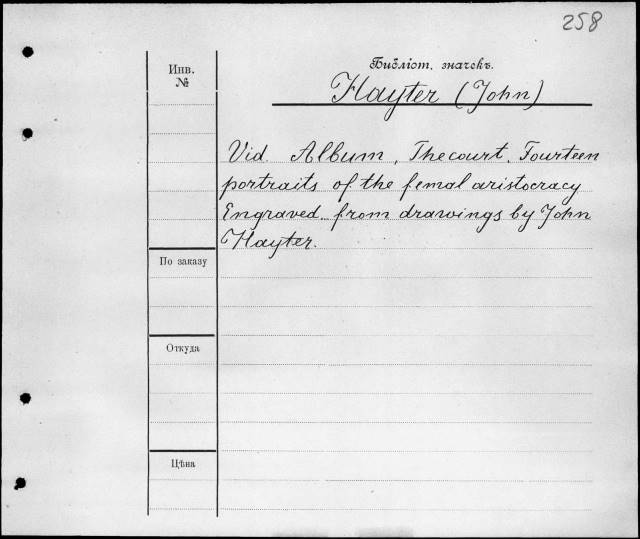 258
Библіот. значекъ.
Инв.
№
Hayter (John)
Vid. Album, The court. Fourteen
portraits of the femal aristocracy
Engraved from drawings by John
Hayter.
По заказу
Откуда
Цѣна